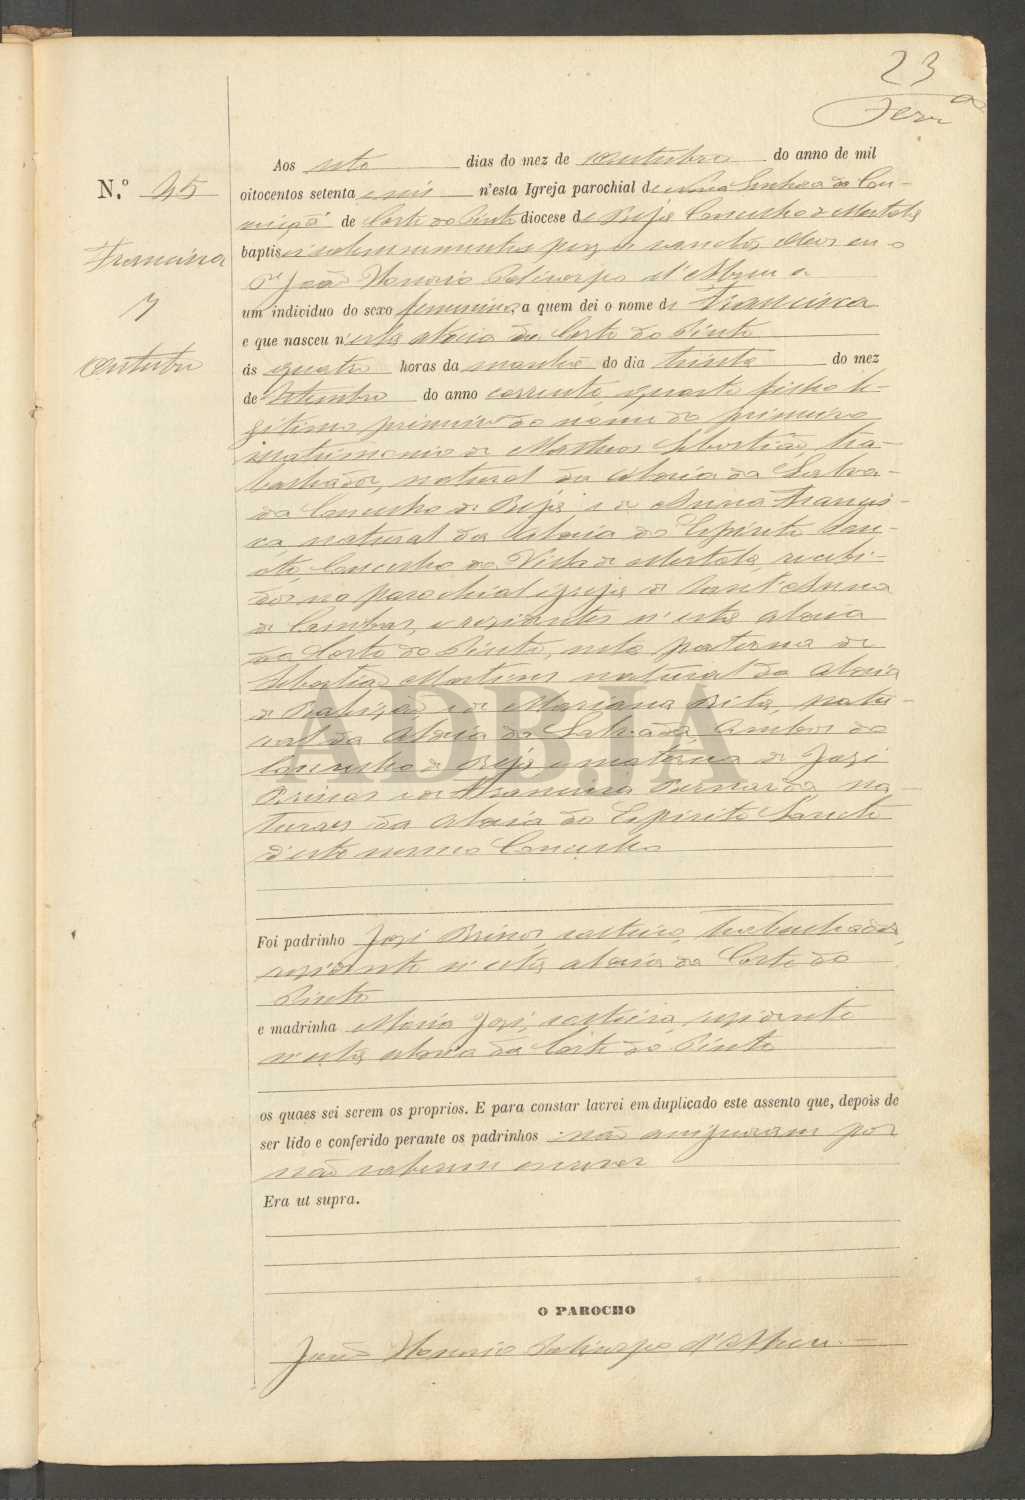 23
Ferrª
Aos sete dias do mez de Outubro do anno de mil
Nº 45
oitocentos setenta e seis n'esta Igreja parochial de Nossa Senhora da Con-
ceiçaõ de Corte do Pinto diocese de Beja Concelho de Mertola
baptisei solemnemente e puz os sanctos oleos eu o
Francisca
Pe João Honorio Policarpo d'Abreu a
um individuo do sexo feminino, a quem dei o nome de Francisca
7
e que nasceu n'esta aldeia da Corte do Pinto
Outubro
ás quatro horas da manhã do dia trinta do mez
de Setembro do anno corrente, quarto filho le-
gitimo primeiro do nome do primeiro
matrimonio de Matheus Sebastião, tra-
balhador, natural da aldeia da Salva-
da Concelho de Beja e de Anna Francis-
ca natural da aldeia do Espirito San-
cto, Concelho da Villa de Mertola, recebi-
dos na parochial igreja de Sant'Anna
de Cambas, e residentes n'esta aldeia
da Corte do Pinto, neto paterna de
Sebastião Martins natural da aldeia
de e de Marianna Rita, natu-
ral da aldeia da Salvada, ambos do
Concelho de Beja e materna de Jozé
e de Francisca Bernarda, na-
turaes da aldeia do Espirito Sancto
d'este mesmo Concelho
Foi padrinho Jozé solteiro, trabalhador,
residente n'esta aldeia da Corte do
Pinto
e madrinha Maria Jozé, solteira, residente
n'esta aldeia da Corte do Pinto
os quaes sei serem os proprios. E para constar lavrei em duplicado este assento que, depois de
ser lido e conferido perante os padrinhos não assignaram por
não saberem escrever
Era ut supra.
O PAROCHO
João Honorio Policarpo d'Abreu
ADBJA